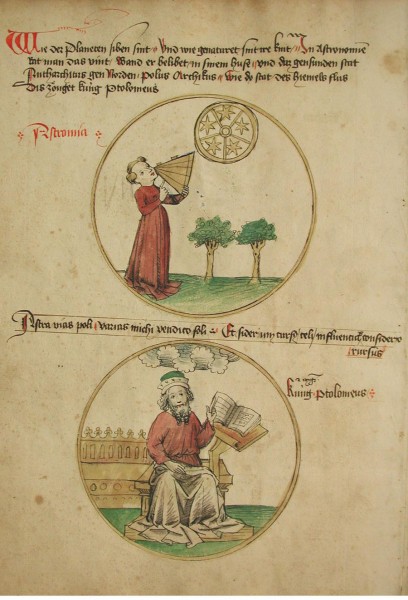 Wie der Planeten siben sint · Und wie genaturet sint ire kint · In Astronomien
hat man das vint · Wand er belibet in sinem huse · und daz gensunden stat
Antharchitus gen Norden · Polus Archikus · wie do stat des hiemels flus
Dis zouget kung Ptolomeus
Astronomia
Astra vias poli · varias michi vendico soli · Et siderum cursus velut influentie considero
rursus
kung Ptolomeus